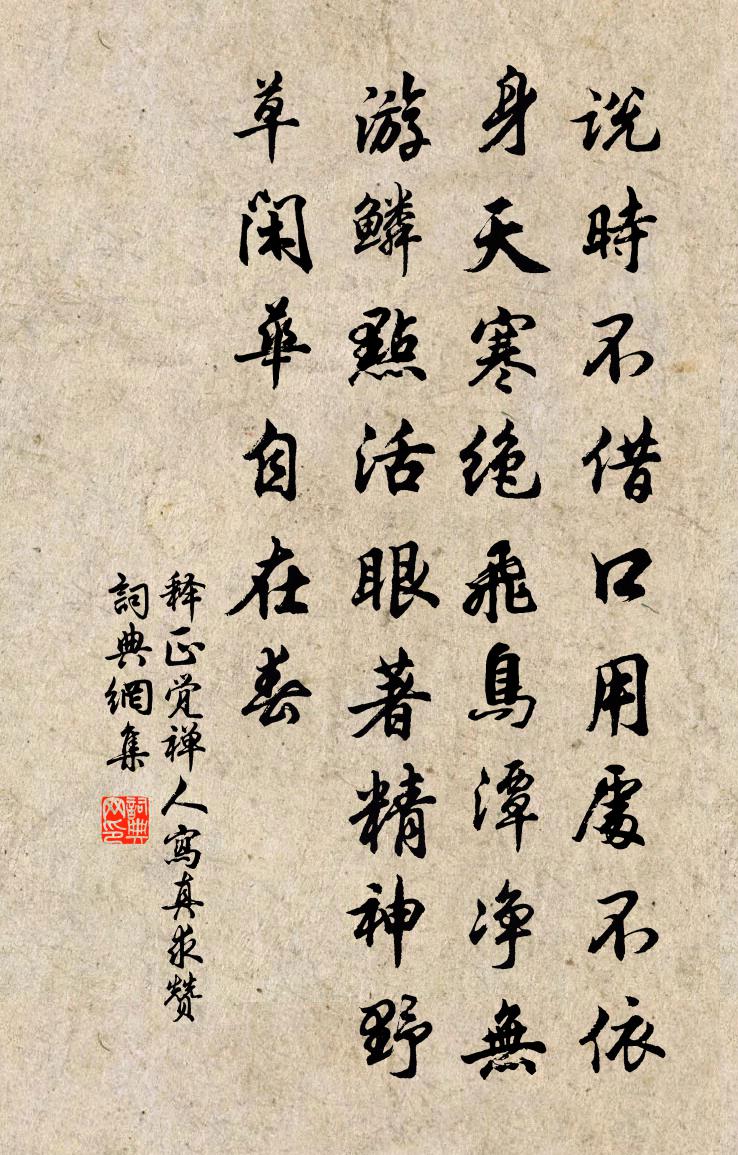 説時不借口用處不依
身天寒絶飛鳥潭净無
游鱗點活眼著精神野
草閑華自在春
释正觉禅人寫真求赞
詞典網集
詞典網印